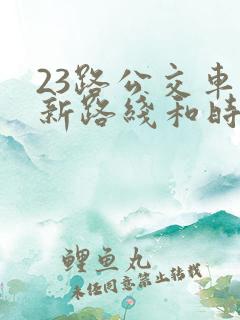 23路公交车
新路线和时
鲤鱼丸
未经同意禁止转载